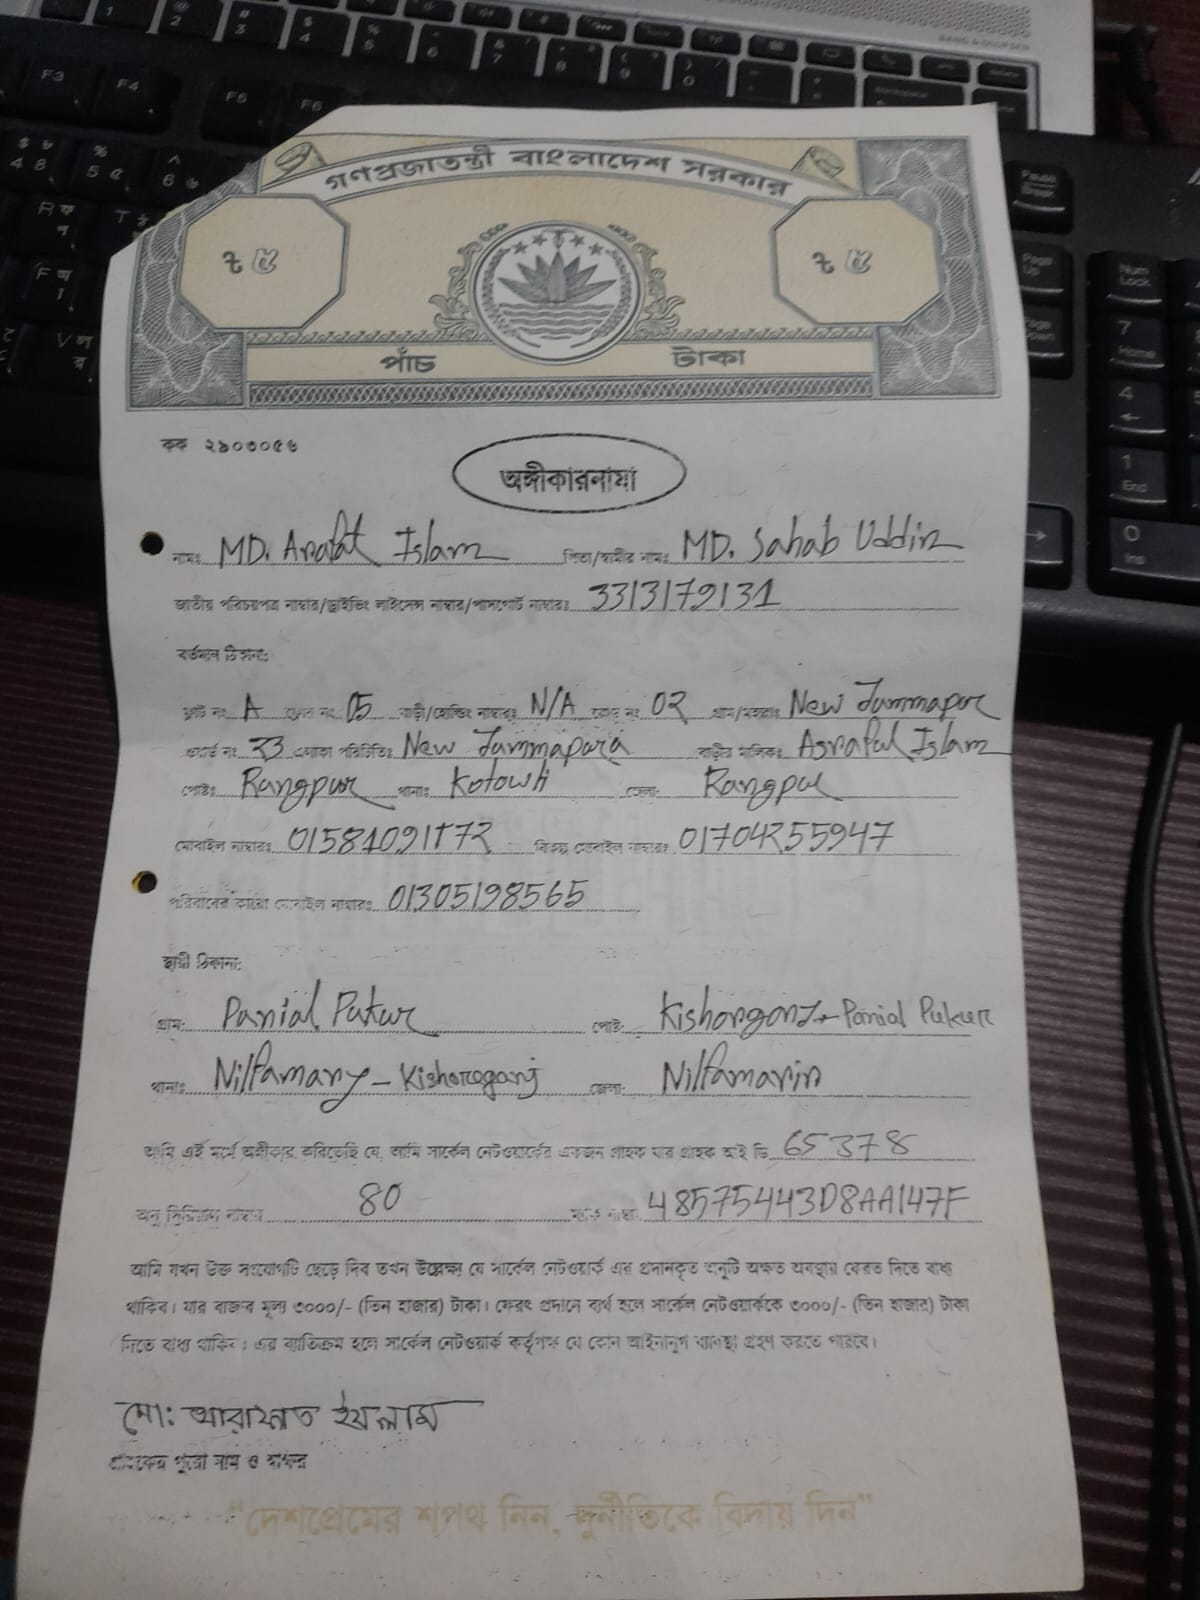 গণপ্রজাতন্ত্রী বাংলাদেশ সরকার
৳ ৫ ৳ ৫
পাঁচ টাকা
কক ২৯০৩০৫৬
অঙ্গীকারনামা
নামঃ MD. Arafat Islam পিতা/স্বামীর নামঃ MD. Sahab Uddin
জাতীয় পরিচয়পত্র নাম্বার/ড্রাইভিং লাইসেন্স নাম্বার/পাসপোর্ট নাম্বারঃ 3313179131
বর্তমান ঠিকানা:
ফ্লাট নং A ফ্লোর নং 05 বাড়ী/হোল্ডিং নাম্বারঃ N/A রোড নং 02 গ্রাম/মহল্লাঃ New Jummapur
ওয়ার্ড নং 23 এলাকা পরিচিতিঃ New Jummapara বাড়ীর মালিকঃ Asraful Islam
পোষ্টঃ Rangpur থানাঃ Kotowli জেলা: Rangpur
মোবাইল নাম্বারঃ বিকল্প মোবাইল নাম্বারঃ 01704255947
পরিবারের কারো মোবাইল নাম্বারঃ 01305198565
স্থায়ী ঠিকানা:
গ্রাম: Panial Pukur পোষ্ট: Panial Pukur
থানাঃ Kishoreganj জেলা:
আমি এই মর্মে অঙ্গীকার করিতেছি যে, আমি সার্কেল নেটওয়ার্কের একজন গ্রাহক যার গ্রাহক আই ডি 65378
অনু সিরিয়াল নাম্বার 80 48575443D8AA147F
আমি যখন উক্ত সংযোগটি ছেড়ে দিব তখন উল্লেক্ষ্য যে সার্কেল নেটওয়ার্ক এর প্রদানকৃত অনুটি অক্ষত অবস্থায় ফেরত দিতে বাধ্য
থাকিব। যার বাজার মূল্য ৩০০০/- (তিন হাজার) টাকা। ফেরৎ প্রদানে ব্যর্থ হলে সার্কেল নেটওয়ার্ককে ৩০০০/- (তিন হাজার) টাকা
দিতে বাধ্য থাকিব। এর ব্যতিক্রম হলে সার্কেল নেটওয়ার্ক কর্তৃপক্ষ যে কোন আইনানুগ ব্যবস্থা গ্রহণ করতে পারবে।
মো: আরাফাত ইসলাম
গ্রাহকের পুরো নাম ও স্বাক্ষর
"দেশপ্রেমের শপথ নিন, দুর্নীতিকে বিদায় দিন"